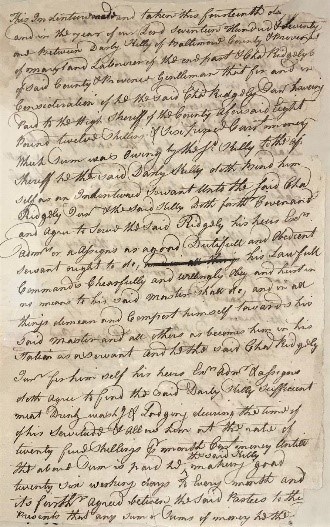 This Indenture made and taken this fourteenth da
and in the year of our Lord Seventeen Hundred & Seventy
one Between Darby Kelly of Baltimore County & Province
of Maryland Labourer of the one part & Cha Ridgely
of said County & Province Gentleman that for and in
Consideration of he the said Cha Ridgely Jun having
Paid to the High Sheriff of the County aforesaid Eight
Pound twelve Shillings & Six pence Curr money
Which Sum was Owing by the sd Kelly to the sd
Sheriff he the said Darby Kelly doth bind him
self as an Indentured Servant Unto the said Cha
Ridgely Junr & the said Kelly Doth further Covenant
and Agree to Serve the said Ridgely his heirs Exrs
Admrs or Assigns as a good Dutifull and Obedient
Servant ought to do, his Lawfull
Commands Chearfully and willingly Obey and hurt in
no means to his said Master shall do, and in all
things demean and Comport himself towards his
Said Master and all others as becomes him in his
Station as a servant And he the said Cha Ridgely
Junr for him self his heirs Exrs Admrs & assigns
doth agree to find the said Darby Kelly Sufficient
meat Drink wash & Lodging during the time of
of his Servitude & Allow him at the rate of
twenty five Shillings month Curr money Untill
the above Sum is paid he the said Kelly making good
twenty six working days to every month and
its further Agreed between the said Parties to the
Presents that any sum or Sums of money he the